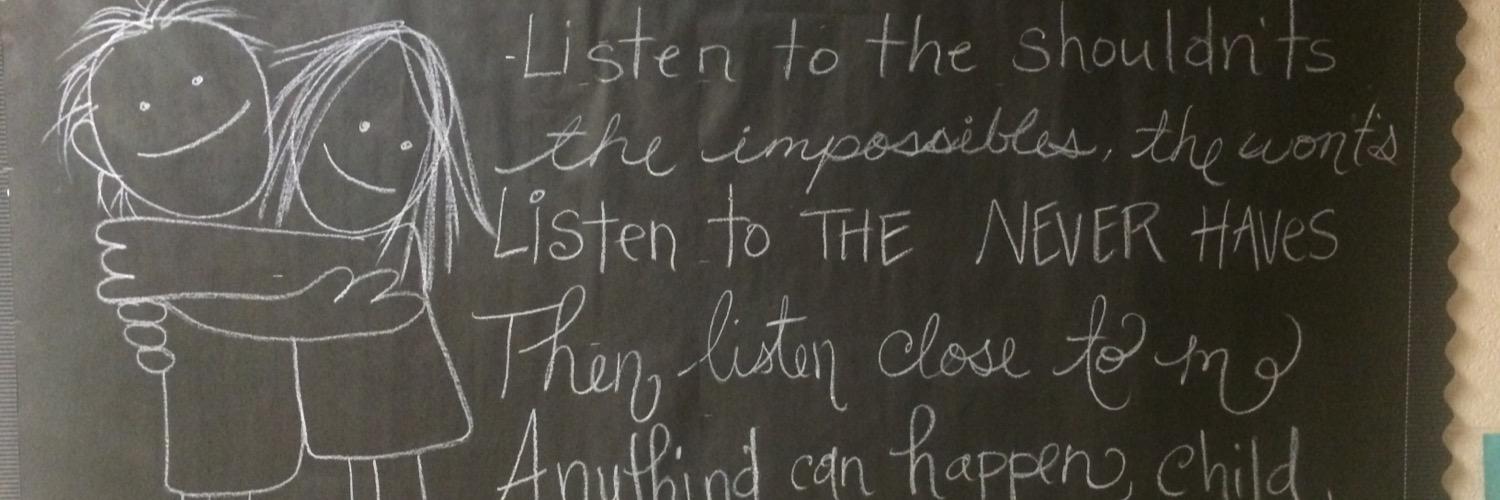 -Listen to the shouldn'ts
the impossibles, the wont's
Listen to THE NEVER HAVES
Then listen close to me
Anything can happen, child